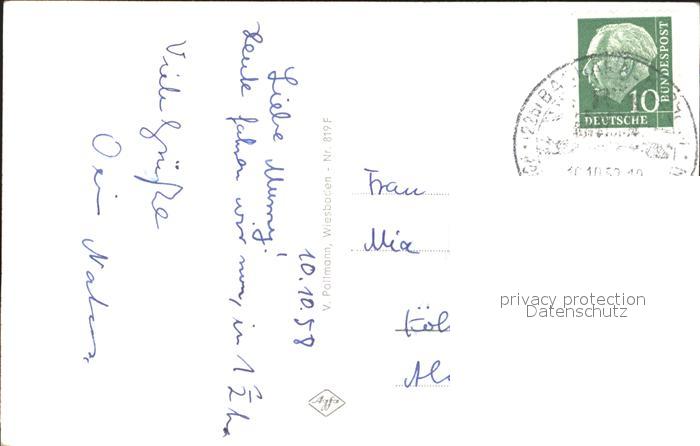 10.10.58
Liebe Mummy!
Heute fahren wir nun, in 1 1/2 ha
Viele Grüße
Dein
V. Pollmann, Wiesbaden - Nr. 819 F
Agfa
10
DEUTSCHE
BUNDESPOST
10.10.58-19
Frau
Mia
Köl
privacy protection
Datenschutz